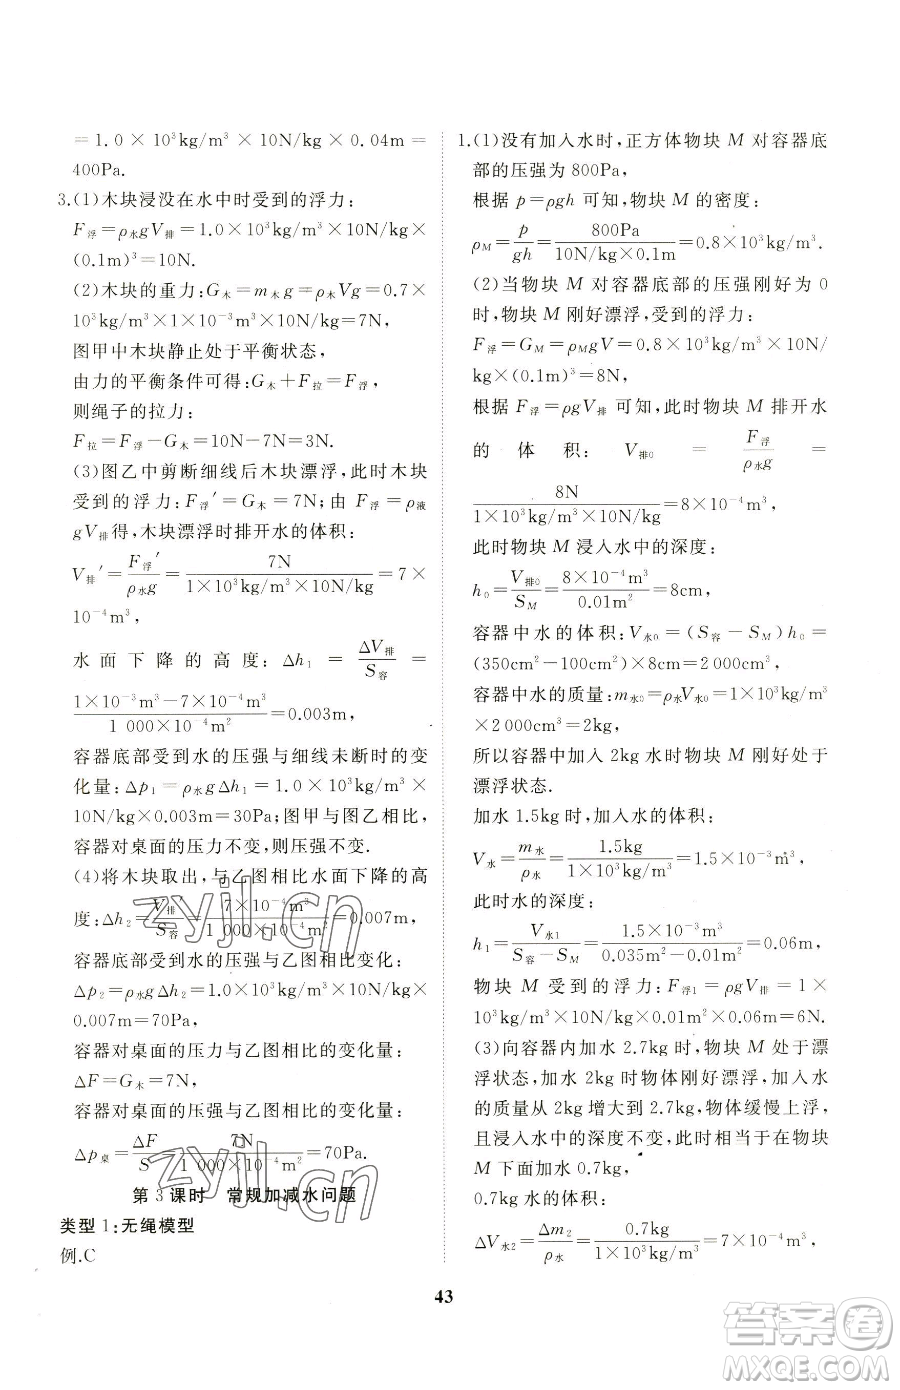 =1.0×10³kg/m³×10N/kg×0.04m=
400Pa.
3.(1)木块浸没在水中时受到的浮力：
F浮=ρ水gV排=1.0×10³kg/m³×10N/kg×
(0.1m)³=10N.
(2)木块的重力：G木=m木g=ρ木Vg=0.7×
10³kg/m³×1×10⁻³m³×10N/kg=7N，
图甲中木块静止处于平衡状态，
由力的平衡条件可得：G木+F拉=F浮，
则绳子的拉力：
F拉=F浮-G木=10N-7N=3N.
(3)图乙中剪断细线后木块漂浮，此时木块
受到的浮力：F浮′=G木=7N；由 F浮=ρ液
gV排得，木块漂浮时排开水的体积：
V排′=F浮′/ρ水g=7N/(1×10³kg/m³×10N/kg)=7×
10⁻⁴m³，
水面下降的高度：Δh₁=ΔV排/S容=
(1×10⁻³m³-7×10⁻⁴m³)/(1 000×10⁻⁴m²)=0.003m，
容器底部受到水的压强与细线未断时的变
化量：Δp₁=ρ水gΔh₁=1.0×10³kg/m³×
10N/kg×0.003m=30Pa；图甲与图乙相比，
容器对桌面的压力不变，则压强不变.
(4)将木块取出，与乙图相比水面下降的高
度：Δh₂=V排/S容=7×10⁻⁴m³/(1 000×10⁻⁴m²)=0.007m，
容器底部受到水的压强与乙图相比变化：
Δp₂=ρ水gΔh₂=1.0×10³kg/m³×10N/kg×
0.007m=70Pa，
容器对桌面的压力与乙图相比的变化量：
ΔF=G木=7N，
容器对桌面的压强与乙图相比的变化量：
Δp桌=ΔF/S=7N/(1 000×10⁻⁴m²)=70Pa.
第 3 课时 常规加减水问题
类型 1：无绳模型
例.C
1.(1)没有加入水时，正方体物块 M 对容器底
部的压强为 800Pa，
根据 p=ρgh 可知，物块 M 的密度：
ρM=p/gh=800Pa/(10N/kg×0.1m)=0.8×10³kg/m³.
(2)当物块 M 对容器底部的压强刚好为 0
时，物块 M 刚好漂浮，受到的浮力：
F浮=GM=ρMgV=0.8×10³kg/m³×10N/kg
×(0.1m)³=8N，
根据 F浮=ρgV排 可知，此时物块 M 排开水
的体积：V排0=F浮/ρ水g=
8N/(1×10³kg/m³×10N/kg)=8×10⁻⁴m³，
此时物块 M 浸入水中的深度：
h₀=V排0/SM=8×10⁻⁴m³/0.01m²=8cm，
容器中水的体积：V水0=(S容-SM)h₀=
(350cm²-100cm²)×8cm=2 000cm³，
容器中水的质量：m水0=ρ水V水0=1g/cm³
×2 000cm³=2kg，
所以容器中加入 2kg 水时物块 M 刚好处于
漂浮状态.
加水 1.5kg 时，加入水的体积：
V水=m水/ρ水=1.5kg/(1×10³kg/m³)=1.5×10⁻³m³，
此时水的深度：
h₁=V水1/(S容-SM)=1.5×10⁻³m³/(0.035m²-0.01m²)=0.06m，
物块 M 受到的浮力：F浮1=ρgV排=1×
10³kg/m³×10N/kg×0.01m²×0.06m=6N.
(3)向容器内加水 2.7kg 时，物块 M 处于漂
浮状态，加水 2kg 时物体刚好漂浮，加入水
的质量从 2kg 增大到 2.7kg，物体缓慢上浮，
且浸入水中的深度不变，此时相当于在物块
M 下面加水 0.7kg，
0.7kg 水的体积：
ΔV水2=Δm₂/ρ水=0.7kg/(1×10³kg/m³)=7×10⁻⁴m³，
43
zyjl.cn
zyjl.cn
答案圈
MXQE.COM